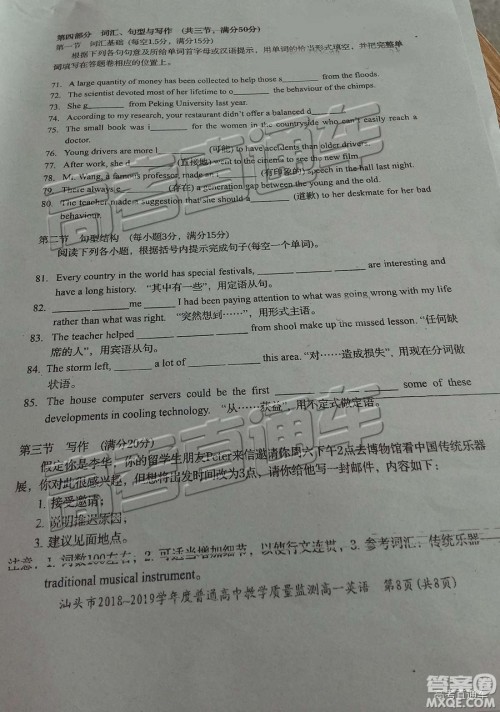 第四部分 词汇、句型与写作 (共三节,满分50分)
第一节 词汇基础 (每空1.5分,满分15分)
根据下列各句句意及所给单词首字母或汉语提示,用单词的恰当形式填空,并把完整单
词填写在答题卷相应的位置上。
71. A large quantity of money has been collected to help those s__________ from the floods.
72. The scientist devoted most of her lifetime to o__________ the behaviour of the chimps.
73. She g__________ from Peking University last year.
74. According to my research, your restaurant didn't offer a balanced d__________
75. The small book was i__________ for the women in the countryside who can't easily reach a
doctor.
76. Young drivers are more l__________ (可能) to have accidents than older drivers.
77. After work, she d__________ (直接地) went to the cinema to see the new film
78. M. Wang, a famous professor, made an i__________ (有印象的) speech in the hall last night.
79. There always e__________ (存在) a generation gap between the young and the old.
80. The teacher made a suggestion that she should a__________ (道歉) to her deskmate for her bad
behaviour.
第二节 句型结构 (每小题3分,满分15分)
阅读下列各小题,根据括号内提示完成句子(每空一个单词)。
81. Every country in the world has special festivals, ________ ________ ________ are interesting and
have a long history. "其中有一些",用定语从句。
82. ________ ________ me ________ I had been paying attention to what was going wrong with my life
rather than what was right. "突然想到……",用形式主语。
83. The teacher helped ________ ________ ________ from shool make up the missed lesson. "任何缺
席的人",用宾语从句。
84. The storm left, ________ a lot of ________ ________ this area. "对……造成损失",用现在分词做
状语。
85. The house computer servers could be the first ________ ________ ________ some of these
developments in cooling technology. "从……获益",用不定式做定语。
第三节 写作 (满分20分)
假定你是李华,你的留学生朋友Peter来信邀请你周六下午2点去博物馆看中国传统乐器
展,你对此很感兴趣,但有事希望改为3点,请你给他写一封邮件,内容如下:
1. 接受邀请;
2. 说明推迟原因;
3. 建议见面地点。
注意:1. 词数100左右;2. 可适当增加细节,以使行文连贯;3. 参考词汇:传统乐器
traditional musical instrument。
汕头市2018~2019学年度普通高中教学质量监测高一英语 第8页(共8页)
高考直通车
答案圈
MXQE.COM